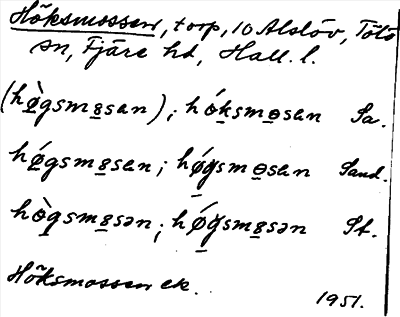 Höksmossen, torp, 10 Alslöv, Tölö
sn, Fjäre hd, Hall. l.
(hø̀gsmꝏsan); hóksmosan Sa.
hǿgsmꝏsan; hǿgsmosan Sand.
hògsmꝏsən; hǿgsmꝏsən St.
Höksmossen ek.
1951.